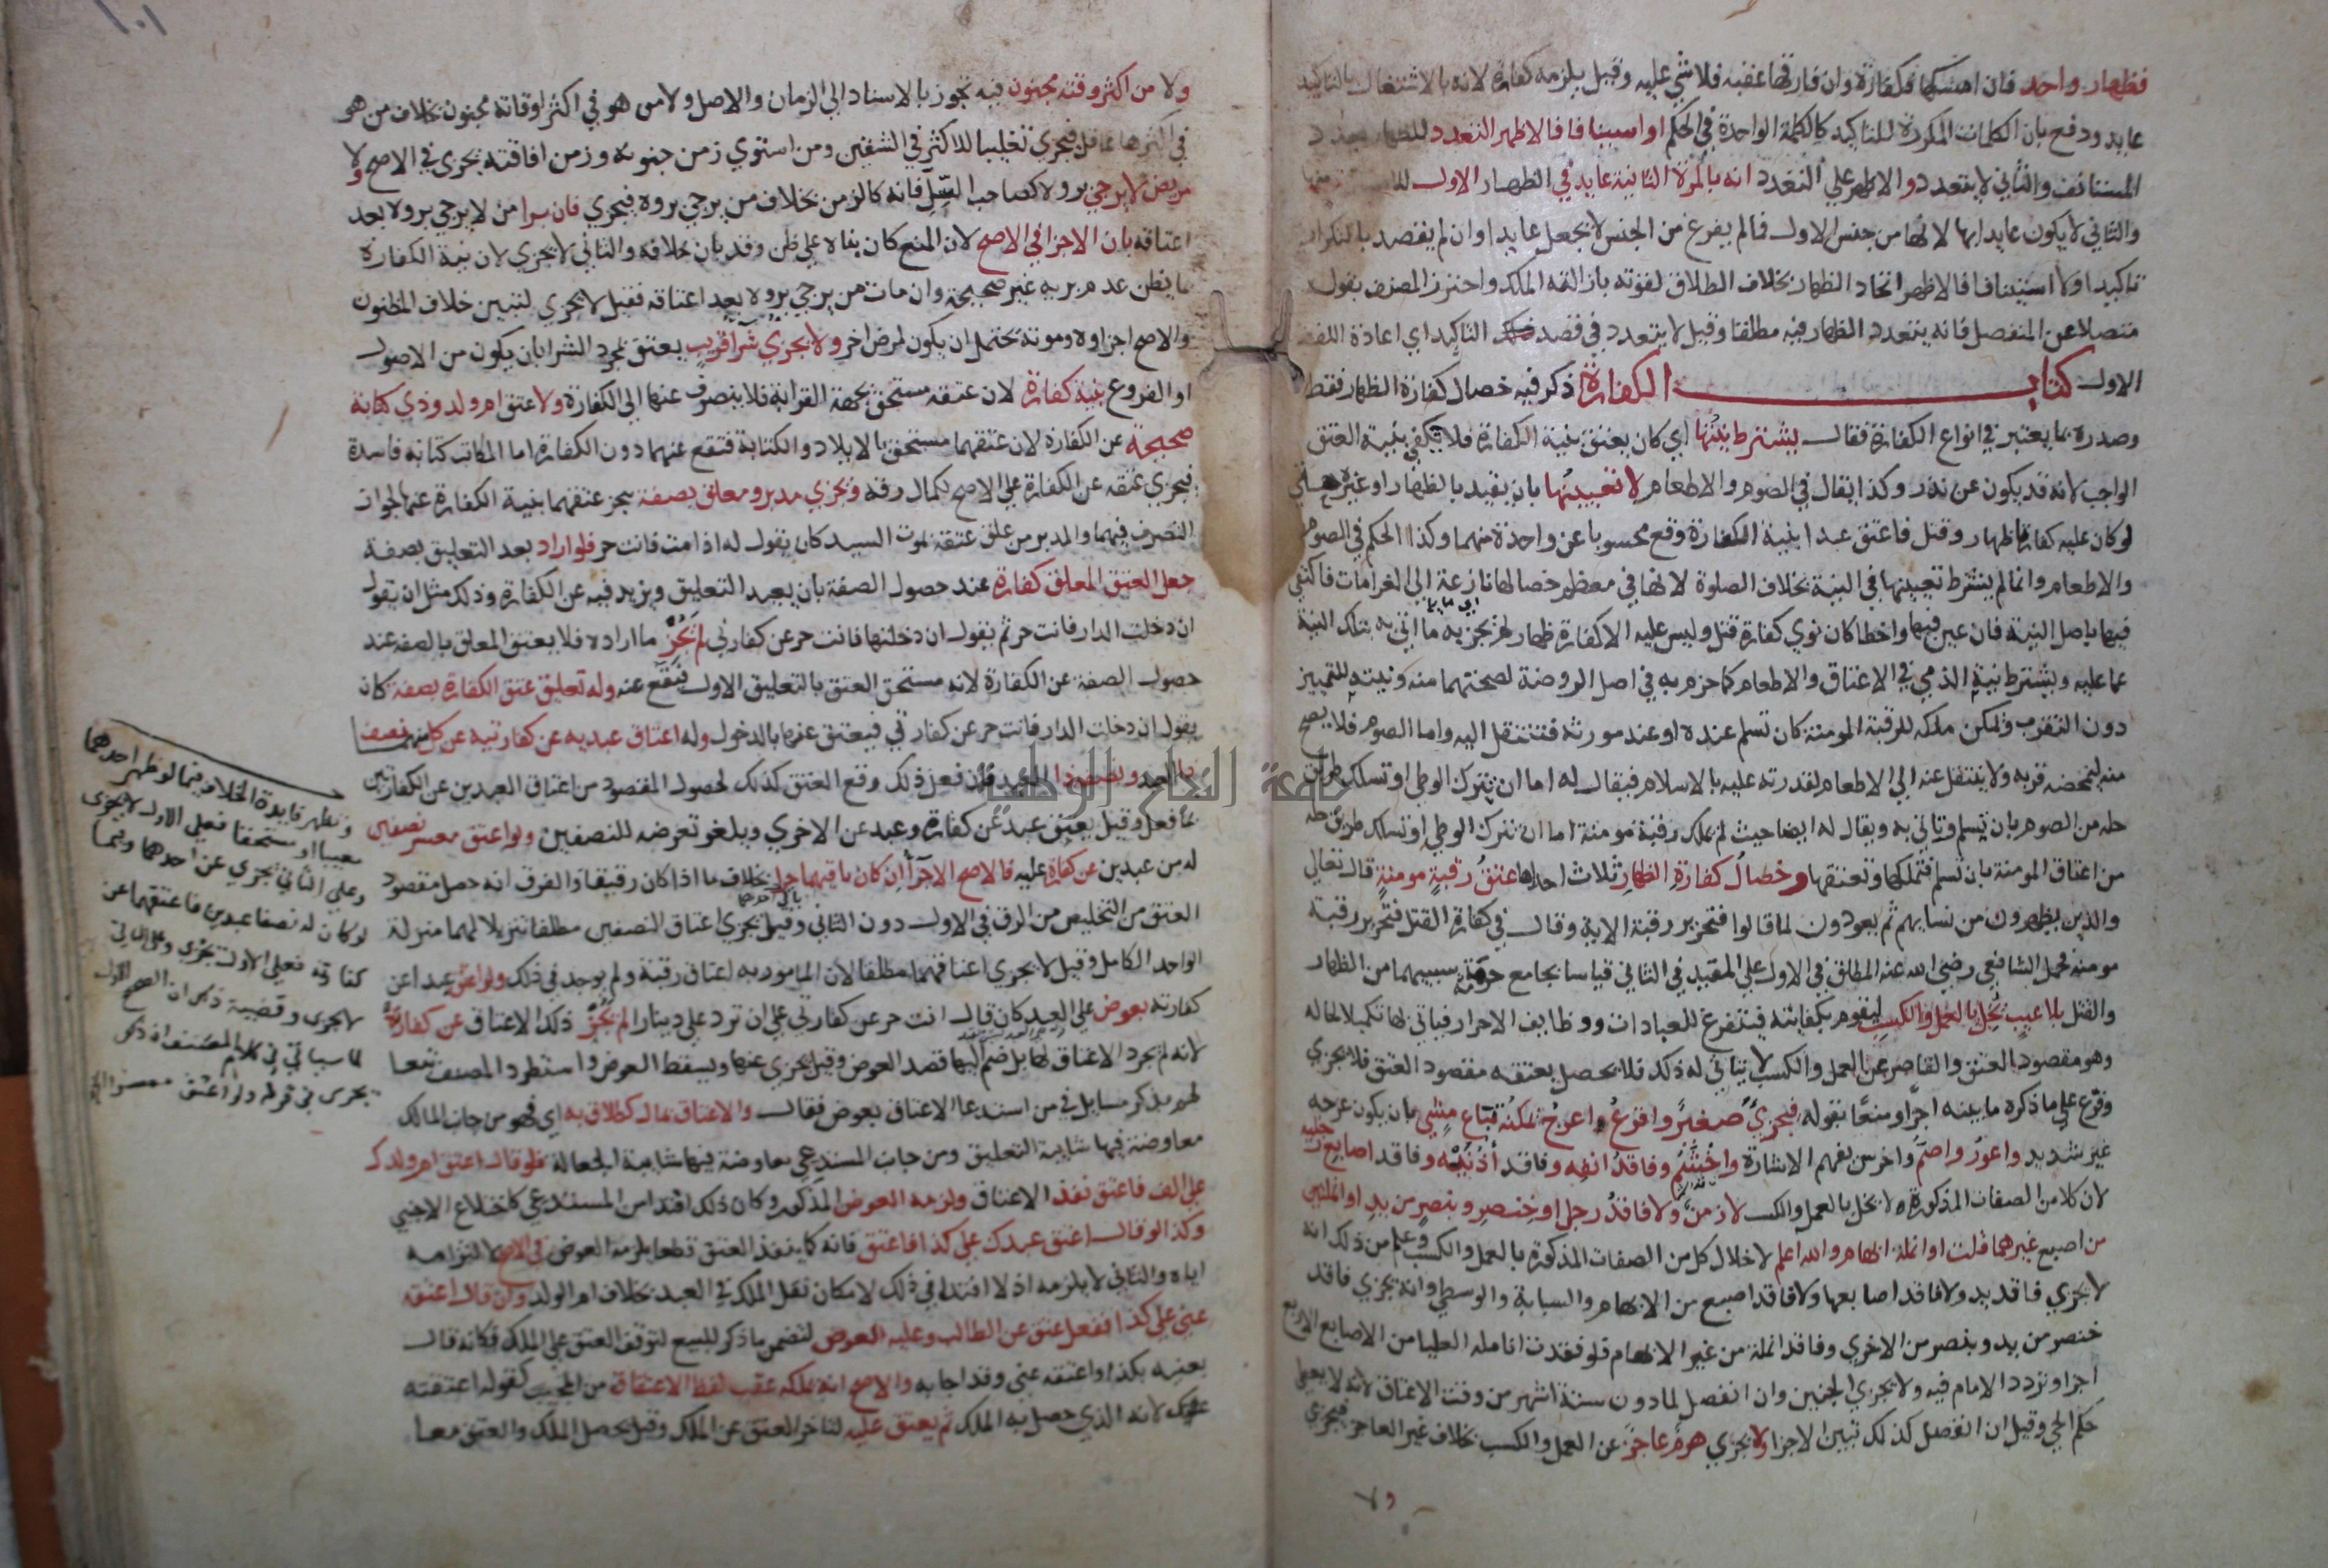 فظهار واحد فان امسكها فكفارة وان فارقها عقبه فلا شي عليه وقيل يلزمه كفارة لانه بالاشتغال بالتاكيد
عايد ودفع بان الكلمات المكررة للتاكيد كالكلمة الواحدة في الحكم او استينافا فالاظهر التعدد للظهار
المستانف والثاني لا يتعدد والاظهر علي التعدد انه بالمرة الثانية عايد في الظهار الاول
والثاني لا يكون عايدا بها لانها من جنس الاول فما لم يفرغ من الجنس لا يجعل عايدا وان لم يقصد بالتكرار
تاكيدا ولا استينافا فالاظهر اتحاد الظهار بخلاف الطلاق لقوته بازالته الملك واحترز المصنف بقوله
متصلا عن المنفصل فانه يتعدد الظهار فيه مطلقا وقيل لا يتعدد في قصد التاكيد اي اعادة اللفظ
الاول كتاب الكفارة ذكر فيه خصال كفارة الظهار فقط
وصدره بما يعتبر في انواع الكفارة فقال يشترط نيتها اي كان يعتق بنية الكفارة فلا يكفي بنية العتق
الواجب لانه قد يكون عن نذر وكذا يقال في الصوم والاطعام لا تعيينها بان يقيد بالظهار او غيره
لو كان عليه كفارتا ظهار وقتل فاعتق عبدا بنية الكفارة وقع محسوبا عن واحدة منهما وكذا الحكم في الصوم
والاطعام وانما لم يشترط تعيينها في النية بخلاف الصلوة لانها في معظم خصالها نازعة الي الغرامات فاكتفي
فيها باصل النية فان عين فيها واخطا كان نوي كفارة قتل وليس عليه الا كفارة ظهار لم يجزيه ما اتي به بتلك النية
عما عليه ويشترط نية الذمي في الاعتاق والاطعام كما جزم به في اصل الروضة لصحتهما منه ونيته للتمييز
دون التقرب ويمكن ملكه للرقبة المومنة كان تسلم عنده او عند مورثه فتنتقل اليه واما الصوم فلا يصح
منه لتمحضه قربه ولا ينتقل عنه الي الاطعام لقدرته عليه بالاسلام فيقال له اما ان تترك الوطي او تسلك طريق
حله من الصوم بان تسلم وتاتي به ويقال له ايضا حيث لم يملك رقبة مومنة اما ان تترك الوطي او تسلك طريق حله
من اعتاق المومنة بان تسلم فتملكها وتعتقها وخصال كفارة الظهار ثلاث احداها عتق رقبة مومنة قال تعالي
والذين يظهرون من نسايهم ثم يعودون لما قالوا فتحرير رقبة الاية وقال في كفارة القتل فتحرير رقبة
مومنة فحمل الشافعي رضي الله عنه المطلق في الاول علي المقيد في الثاني قياسا بجامع حرمة سببيهما من الظهار
والقتل بلا عيب يخل بالعمل والكسب ليقوم بكفايته فيتفرغ للعبادات ووظايف الاحرار فياتي بها تكميلا لحاله
وهو مقصود العتق والقاصر عن العمل والكسب لا يتاتي له ذلك فلا يحصل بعتقه مقصود العتق فلا يجزي
وفرع علي ما ذكره ما يبنه اجزا ومنعا بقوله فيجزي صغير واقرع واعرج يمكنه تباع مشي بان يكون عرجه
غير شديد واعور واصم واخرس يفهم الاشارة واخشم وفاقد انفه وفاقد اذنيه وفاقد اصابع رجليه
لان كلا من الصفات المذكورة لا يخل بالعمل والكسب لا زمن ولا فاقد رجل او خنصر وبنصر من يد او انملتين
من اصبع غيرهما قلت او انملة ابهام والله اعلم لاخلال كل من الصفات المذكورة بالعمل والكسب وعلم من ذلك انه
لا يجزي فاقد يد ولا فاقد اصابعها ولا فاقد اصبع من الابهام والسبابة والوسطي وانه يجزي فاقد
خنصر من يد وبنصر من الاخري وفاقد انملة من غير الابهام فلو فقدت انامله العليا من الاصابع الاربع
اجزا وتردد الامام فيه ولا يجزي الجنين وان انفصل لما دون ستة اشهر من وقت الاعتاق لانه لا يعطي
حكم الحي وقيل ان انفصل كذلك تبين الاجزا ولا يجزي هرم عاجز عن العمل والكسب بخلاف غير العاجز فيجزي
ولا
١٠١
ولا من اكثر وقته مجنون فيه تجوز بالاسناد الي الزمان والاصل ولا من هو في اكثر اوقاته مجنون بخلاف من هو
في اكثرها عاقل فيجزي تغليبا للاكثر في الشقين ومن استوي زمن جنونه وزمن افاقته يجزي في الاصح ولا
مريض لا يرجي بروه كصاحب السل فانه كالزمن بخلاف من يرجي بروه فيجزي فان برا من لا يرجي بروه بعد
اعتاقه بان الاجزا في الاصح لان المنع كان بناه علي ظن وقد بان خلافه والثاني لا يجزي لان نية الكفارة
ما يظن عدم بريه غير صحيحة وان مات من يرجي بروه بعد اعتاقه فقيل لا يجزي لتبين خلاف المظنون
والاصح اجزاوه وموته يحتمل ان يكون لمرض اخر ولا يجزي شرا قريب يعتق بمجرد الشرا بان يكون من الاصول
او الفروع بنية كفارة لان عتقه مستحق بجهة القرابة فلا ينصرف عنها الي الكفارة ولا عتق ام ولد وذي كتابة
صحيحة عن الكفارة لان عتقهما مستحق بالايلاد والكتابة فتقع عنهما دون الكفارة اما المكاتب كتابة فاسدة
فيجزي عتقه عن الكفارة علي الاصح لكمال رقه ويجزي مدبر ومعلق بصفة ينجز عتقهما بنية الكفارة عنها لجواز
التصرف فيهما والمدبر من علق عتقه بموت السيد كان يقول له اذا مت فانت حر فلو اراد بعد التعليق بصفة
جعل العتق المعلق كفارة عند حصول الصفة بان يعيد التعليق ويزيد فيه عن الكفارة وذلك مثل ان يقول
ان دخلت الدار فانت حر ثم يقول ان دخلتها فانت حر عن كفارتي لم يجز ما اراده فلا يعتق المعلق بالصفه عند
حصول الصفة عن الكفارة لانه مستحق العتق بالتعليق الاول فيقع عنه وله تعليق عتق الكفارة بصفة كان
يقول ان دخلت الدار فانت حر عن كفارتي فيعتق عنها بالدخول وله اعتاق عبديه عن كفارتيه عن كل نصف
ذا العبد ونصف ذا العبد فان فعل ذلك وقع العتق كذلك لحصول المقصود من اعتاق العبدين عن الكفارتين
بما فعل وقيل يعتق عبد عن كفارة وعبد عن الاخري ويلغو تعرضه للنصفين ولو اعتق معسر نصفين
له من عبدين عن كفارة عليه فالاصح الاجزا ان كان باقيهما حرا بخلاف ما اذا كان رقيقا والفرق انه حصل مقصود
باقي احدهما
العتق من التخليص من الرق في الاول دون الثاني وقيل يجزي اعتاق النصفين مطلقا تنزيلا لهما منزلة
الواحد الكامل وقيل لا يجزي اعتاقهما مطلقا لان المامور به اعتاق رقبة ولم يوجد في ذلك ولو اعتق عبدا عن
كفارته بعوض علي العبد كان قال انت حر عن كفارتي علي ان ترد علي دينارا لم يجز ذلك الاعتاق عن كفارته
لانه لم يجرد الاعتاق لها بل ضم اليها قصد العوض وقيل يجزي عنها ويسقط العوض واستطرد المصنف تبعا
لهم بذكر مسايل في من استدعا الاعتاق بعوض فقال والاعتاق بمال كطلاق به اي فهو من جانب المالك
معاوضة فيها شايبة التعليق ومن جانب المستدعي معاوضة فيها شايبة الجعالة فلو قال اعتق ام ولدك
علي الف فاعتق نفذ الاعتاق ولزمه العوض المذكور وكان ذلك افتدا من المستدعي كاختلاع الاجنبي
وكذا لو قال اعتق عبدك علي كذا فاعتق فانه كما ينفذ العتق قطعا يلزمه العوض في الاصح لالتزامه
اياه والثاني لا يلزمه اذ لا افتدا في ذلك لامكان نقل الملك في العبد بخلاف ام الولد وان قال اعتقه
عني علي كذا ففعل عتق عن الطالب وعليه العوض لتضمن ما ذكر للبيع لتوقف العتق علي الملك فكانه قال
بعنيه بكذا واعتقه عني وقد اجابه والاصح انه يملكه عقب لفظ الاعتاق من المجيب كقوله اعتقته
عنك لانه الذي حصل به الملك ثم يعتق عليه لتاخر العتق عن الملك وقيل يحصل الملك والعتق معا
وتظهر فايدة الخلاف فيما لو ظهر احدهما
معيبا او مستحقا فعلي الاول لا يجزي
وعلي الثاني يجزي عن احدهما
لو كان له نصفا عبدين فاعتقهما عن
كفارته فعلي الاول يجزي وعلي الثاني
لا يجزي وقضية ذكر ان الصحيح الاول
لما سياتي في كلام المصنف
يجزي في قوله ولو اعتق معسر
جامعة النجاح الوطنية